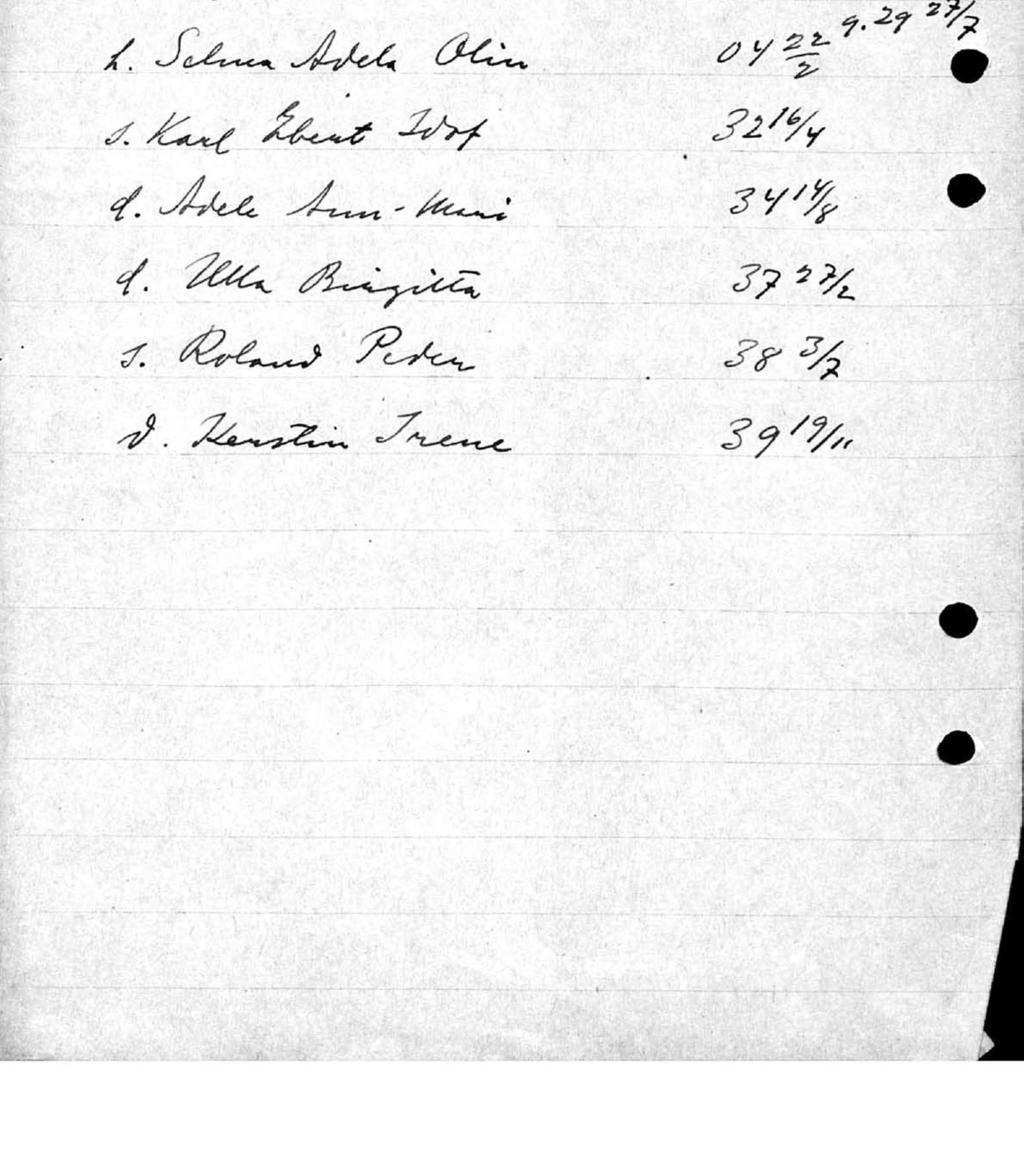 h. Selma Adela Olin 04 22/2 g. 29 27/7
s. Karl Ebert 32 16/4
d. Adele Ann-Mari 34 14/8
d. Ulla Birgitta 37 27/2
s. Roland Peder 38 3/7
d. Kerstin Irene 39 19/11